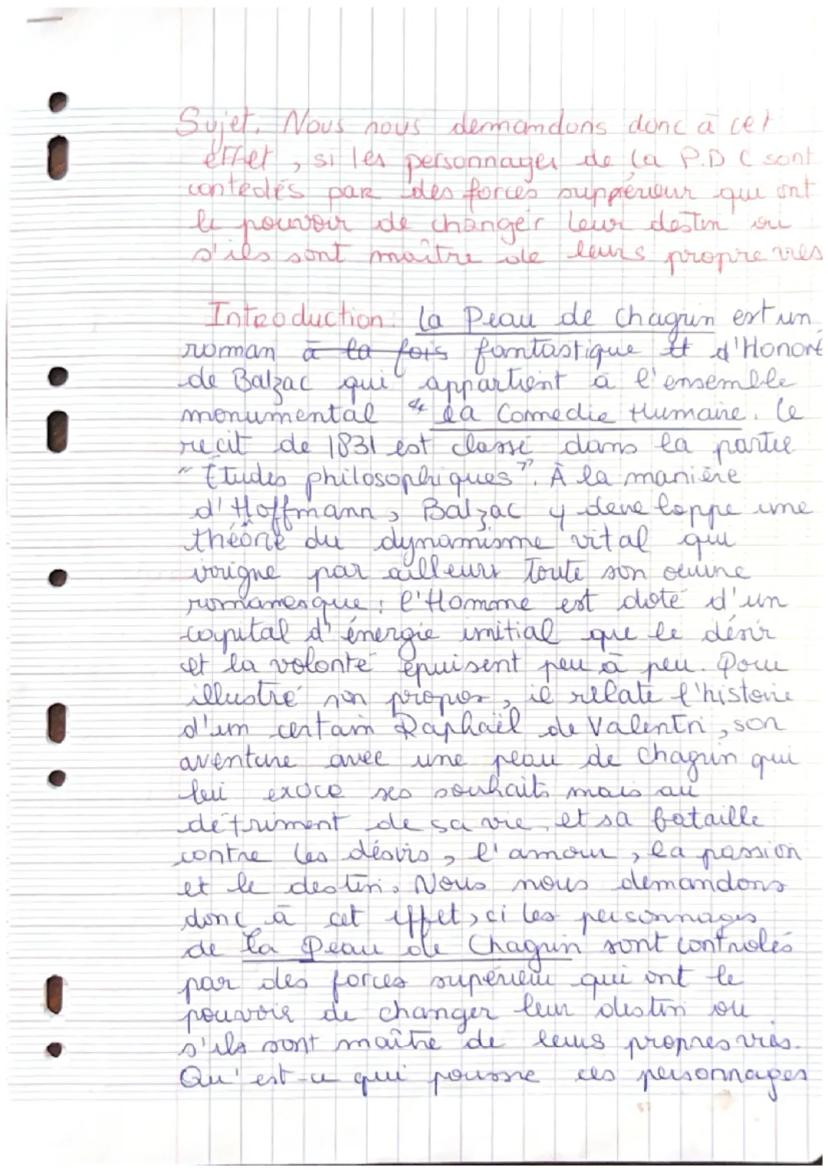 Sujet. Nous nous demandons donc à cet
effet, si les personnages de la P.D C sont
contedés par des forces suppérieur qui ont
le pouvoir de changer leur destin ou
s'ils sont maître de leurs propre vies
Introduction: La Peau de chagrin est un
roman à la fois fantastique et d'Honoré
de Balzac qui appartient à l'ensemble
monumental "La Comedie Humaine. Ce
recit de 1831 est classé dans la partie
"Études philosophiques". À la manière
d'Hoffmann, Balzac y developpe une
théorie du dynamisme vital qui
irrigne par ailleurs toute son œuvre
romanesque : l'Homme est doté d'un
capital d'énergie initial que le désir
et la volonté épuisent peu à peu. Pour
illustré son propos, il relate l'histoire
d'un certain Raphaël de Valentin, son
aventure avec une peau de chagrin qui
lui exoce ses souhaits mais au
détriment de sa vie, et sa bataille
contre les désirs, l'amour, la passion
et le destin. Nous nous demandons
donc à cet effet, ci les personnages
de la Peau de Chagrin sont controlés
par des forces supérieur qui ont le
pouvoir de changer leur destin ou
s'ils sont maître de leurs propres vies.
Qu'est-ce qui pousse ces personnages